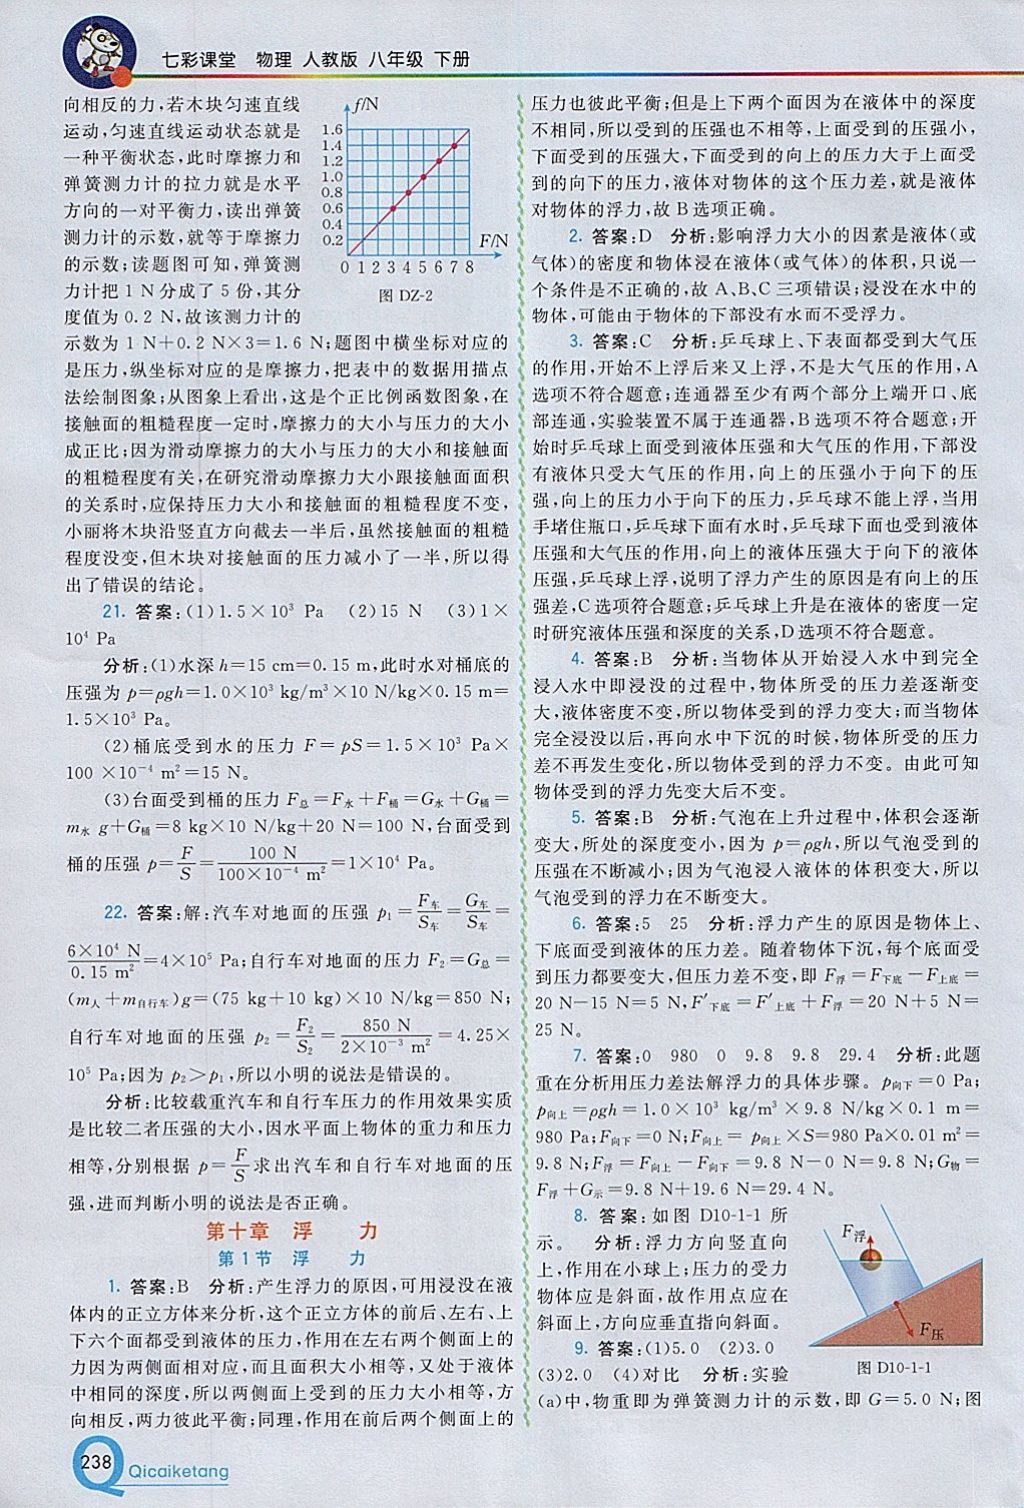 七彩课堂 物理 人教版 八年级 下册
向相反的力,若木块匀速直线
运动,匀速直线运动状态就是
一种平衡状态,此时摩擦力和
弹簧测力计的拉力就是水平
方向的一对平衡力,读出弹簧
测力计的示数,就等于摩擦力
的示数;读题图可知,弹簧测
力计把 1 N 分成了 5 份,其分
度值为 0.2 N,故该测力计的
f/N
1.6
1.4
1.2
1.0
0.8
0.6
0.4
0.2
F/N
0 1 2 3 4 5 6 7 8
图 DZ-2
示数为 1 N+0.2 N×3=1.6 N;题图中横坐标对应的
是压力,纵坐标对应的是摩擦力,把表中的数据用描点
法绘制图象;从图象上看出,这是个正比例函数图象,在
接触面的粗糙程度一定时,摩擦力的大小与压力的大小
成正比;因为滑动摩擦力的大小与压力的大小和接触面
的粗糙程度有关,在研究滑动摩擦力大小跟接触面面积
的关系时,应保持压力大小和接触面的粗糙程度不变,
小丽将木块沿竖直方向截去一半后,虽然接触面的粗糙
程度没变,但木块对接触面的压力减小了一半,所以得
出了错误的结论。
21. 答案:(1)1.5×10³ Pa (2)15 N (3)1×
10⁴ Pa
分析:(1)水深 h=15 cm=0.15 m,此时水对桶底的
压强为 p=ρgh=1.0×10³ kg/m³×10 N/kg×0.15 m=
1.5×10³ Pa。
(2)桶底受到水的压力 F=pS=1.5×10³ Pa×
100 ×10⁻⁴ m²=15 N。
(3)台面受到桶的压力 F总=F水+F桶=G水+G桶=
m水 g+G桶=8 kg×10 N/kg+20 N=100 N,台面受到
桶的压强 p=F/S=100 N/100×10⁻⁴ m²=1×10⁴ Pa。
22. 答案:解:汽车对地面的压强 p₁=F车/S车=G车/S车=
6×10⁴ N/0.15 m²=4×10⁵ Pa;自行车对地面的压力 F₂=G总=
(m人+m自行车)g=(75 kg+10 kg)×10 N/kg=850 N;
自行车对地面的压强 p₂=F₂/S₂=850 N/2×10⁻³ m²=4.25×
10⁵ Pa;因为 p₂>p₁,所以小明的说法是错误的。
分析:比较载重汽车和自行车压力的作用效果实质
是比较二者压强的大小,因水平面上物体的重力和压力
相等,分别根据 p=F/S求出汽车和自行车对地面的压
强,进而判断小明的说法是否正确。
第十章 浮 力
第1节 浮 力
1. 答案:B 分析:产生浮力的原因,可用浸没在液
体内的正立方体来分析,这个正立方体的前后、左右、上
下六个面都受到液体的压力,作用在左右两个侧面上的
力因为两侧面相对应,而且面积大小相等,又处于液体
中相同的深度,所以两侧面上受到的压力大小相等,方
向相反,两力彼此平衡;同理,作用在前后两个侧面上的
238
Qicaiketang
压力也彼此平衡;但是上下两个面因为在液体中的深度
不相同,所以受到的压强也不相等,上面受到的压强小,
下面受到的压强大,下面受到的向上的压力大于上面受
到的向下的压力,液体对物体的这个压力差,就是液体
对物体的浮力,故 B 选项正确。
2. 答案:D 分析:影响浮力大小的因素是液体(或
气体)的密度和物体浸在液体(或气体)的体积,只说一
个条件是不正确的,故 A、B、C 三项错误;浸没在水中的
物体,可能由于物体的下部没有水而不受浮力。
3. 答案:C 分析:乒乓球上、下表面都受到大气压
的作用,开始不上浮后来又上浮,不是大气压的作用,A
选项不符合题意;连通器至少有两个部分上端开口、底
部连通,实验装置不属于连通器,B 选项不符合题意;开
始时乒乓球上面受到液体压强和大气压的作用,下部没
有液体只受大气压的作用,向上的压强小于向下的压
强,向上的压力小于向下的压力,乒乓球不能上浮,当用
手堵住瓶口,乒乓球下面有水时,乒乓球下面也受到液体
压强和大气压的作用,向上的液体压强大于向下的液体
压强,乒乓球上浮,说明了浮力产生的原因是有向上的压
强差,C选项符合题意;乒乓球上升是在液体的密度一定
时研究液体压强和深度的关系,D选项不符合题意。
4. 答案:B 分析:当物体从开始浸入水中到完全
浸入水中即浸没的过程中,物体所受的压力差逐渐变
大,液体密度不变,所以物体受到的浮力变大;而当物体
完全浸没以后,再向水中下沉的时候,物体所受的压力
差不再发生变化,所以物体受到的浮力不变。由此可知
物体受到的浮力先变大后不变。
5. 答案:B 分析:气泡在上升过程中,体积会逐渐
变大,所处的深度变小,因为 p=ρgh,所以气泡受到的
压强在不断减小;因为气泡浸入液体的体积变大,所以
气泡受到的浮力在不断变大。
6. 答案:5 25 分析:浮力产生的原因是物体上、
下底面受到液体的压力差。随着物体下沉,每个底面受
到压力都要变大,但压力差不变,即 F浮=F下底-F上底=
20 N-15 N=5 N,F′下底=F′上底+F浮=20 N+5 N=
25 N。
7. 答案:0 980 0 9.8 9.8 29.4 分析:此题
重在分析用压力差法解浮力的具体步骤。p向下=0 Pa;
p向上=ρgh=1.0×10³ kg/m³×9.8 N/kg×0.1 m=
980 Pa;F向下=0 N;F向上= p向上×S=980 Pa×0.01 m²=
9.8 N;F浮=F向上-F向下=9.8 N-0 N=9.8 N;G物=
F浮+G示=9.8 N+19.6 N=29.4 N。
8. 答案:如图 D10-1-1 所
示。 分析:浮力方向竖直向
上,作用在小球上;压力的受力
物体应是斜面,故作用点应在
斜面上,方向应垂直指向斜面。
9. 答案:(1)5.0 (2)3.0
(3)2.0 (4)对比 分析:实验
F浮
F压
图 D10-1-1
(a)中,物重即为弹簧测力计的示数,即 G=5.0 N;图